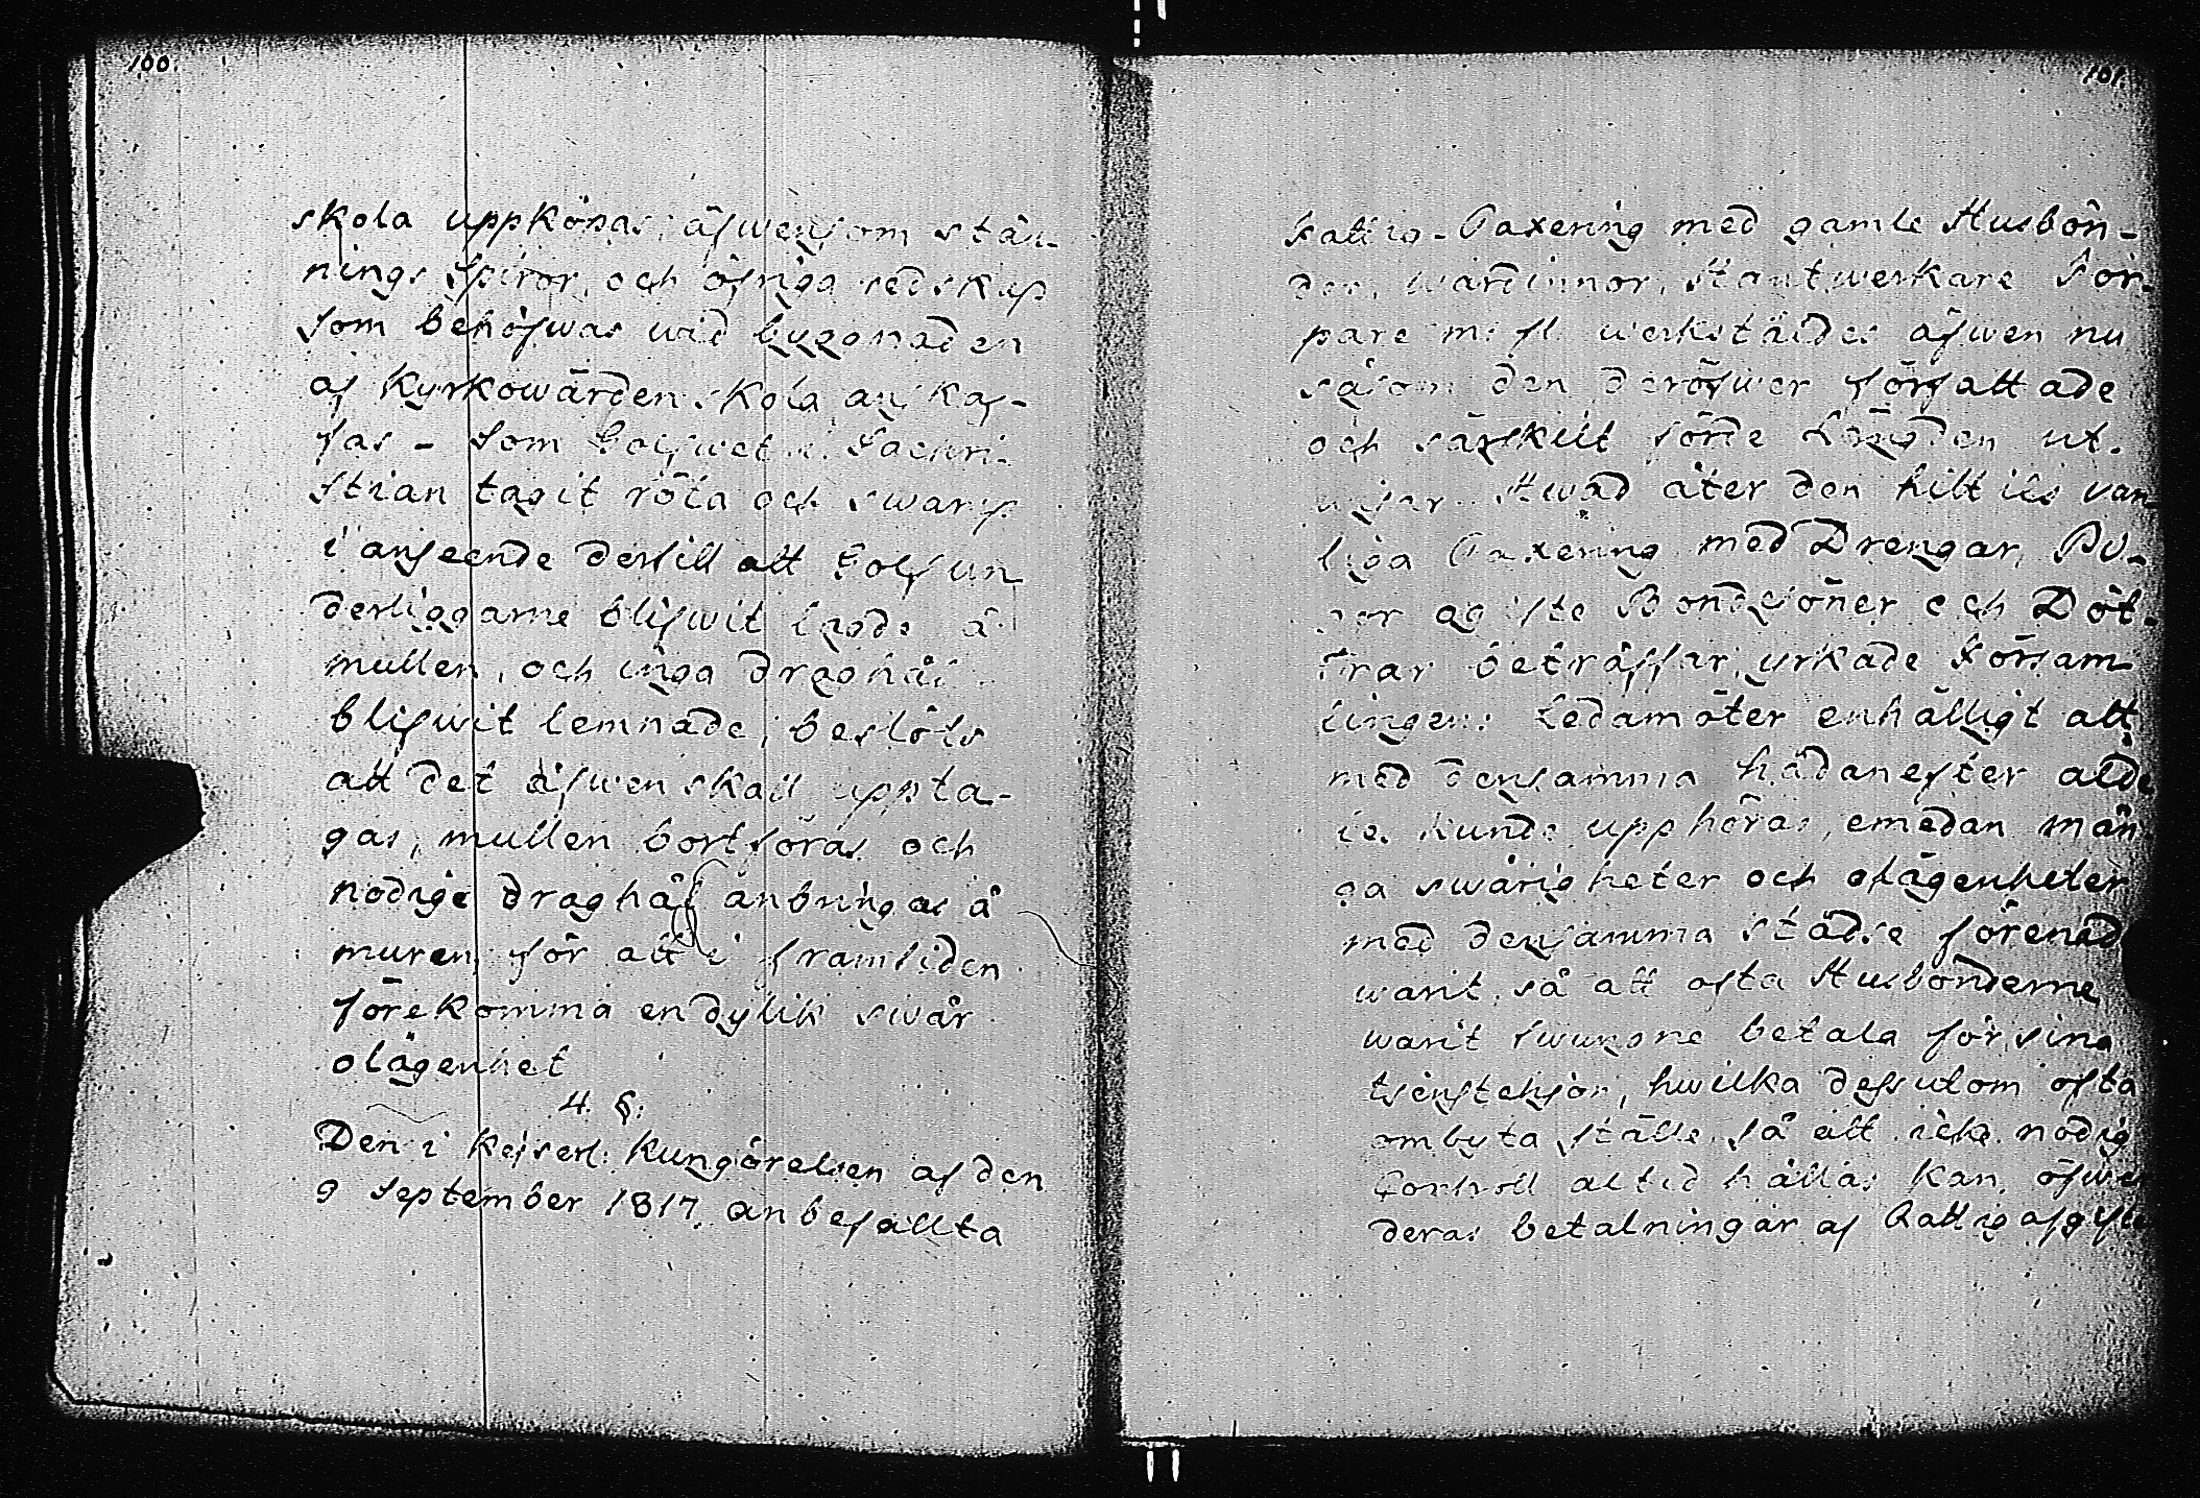 100.
skola uppköpas; äfwensom stän-
nings Spiror, och öfriga redskap
som behöfwas wid byggnaden
af Kyrkowärden skola anskaf-
fas - Som Golfwet i Sachri-
stian tagit röta och swamp
i anseende dertill att Golfun
derliggarne blifwit lagde å
mullen, och inga draghål
blifwit lemnade; beslöts
att det äfwen skall uppta-
gas, mullen bortföras och
nödige draghål anbringas å
muren för att i framtiden
förekomma en dylik swår
olägenhet
4. §.
Den i Kejserl: Kungörelsen af den
9 September 1817. anbefallta
101.
Fattig-Taxering med gamle Husbön-
der, wärdinnor, Hantwerkare Tor-
pare m: fl. werkställdes äfwen nu
såsom den deröfwer författade
och särskilt förde Längden ut-
wisar. Hwad åter den hittils van
liga Taxering med Drengar, Pi-
gor ogifte Bondesöner och Döt-
trar beträffar, yrkade Försam
lingens Ledamöter enhälligt att
med densamma hädanefter alde
les kunde upphöras, emedan mån
ga swårigheter och olägenheter
med densamma städse förenad
warit, så att ofta Husbönderne
warit twungne betala för sina
tjenstehjon, hwilka dessutom ofta
ombyta ställe, så att icke nödig
Controll altid hållas kan öfwer
deras betalningar af Fattigafgifte